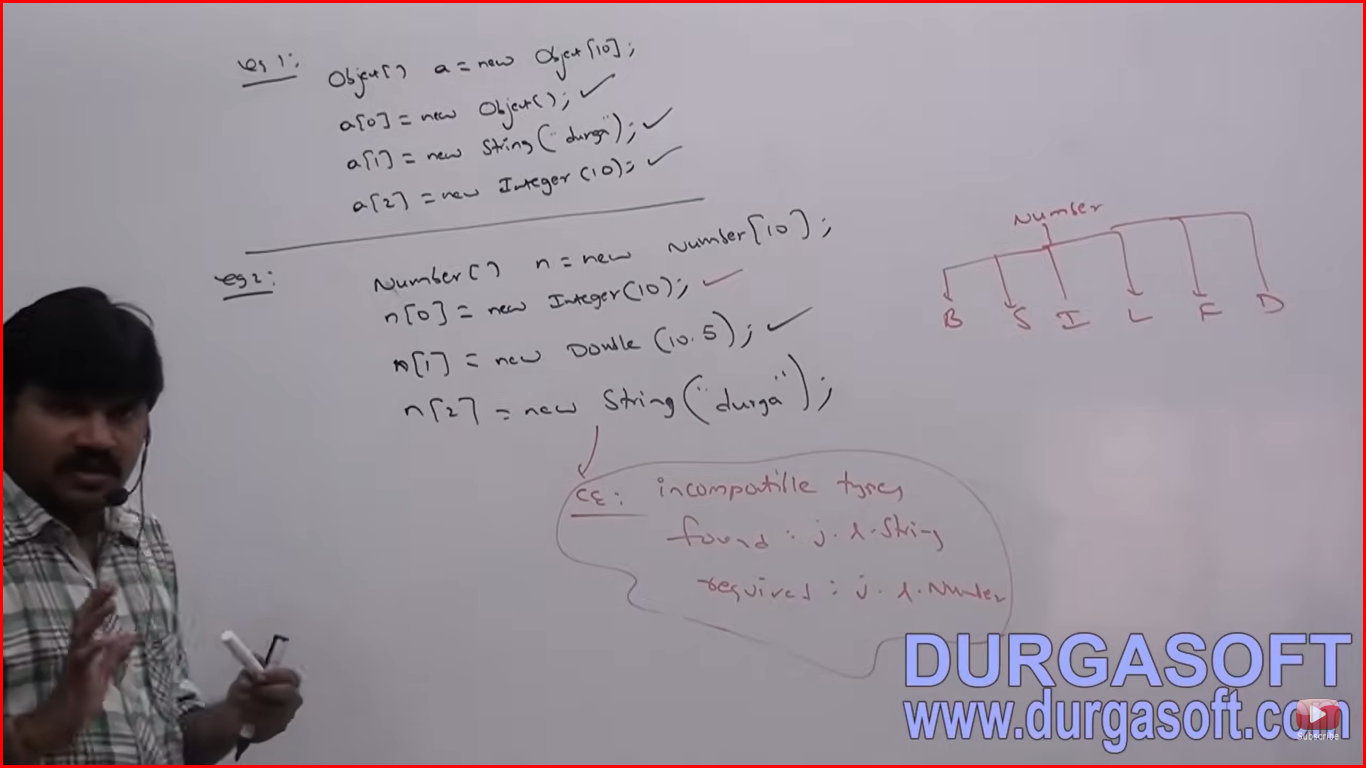 eg 1:
Object[] a = new Object[10];
a[0] = new Object();
a[1] = new String("durga");
a[2] = new Integer(10);
eg 2:
Number[] n = new Number[10];
n[0] = new Integer(10);
n[1] = new Double(10.5);
n[2] = new String("durga");
CE: incompatible types
found : j.l.String
required : j.l.Number
Number
B S I L F D
DURGASOFT
www.durgasoft.com
Subscribe